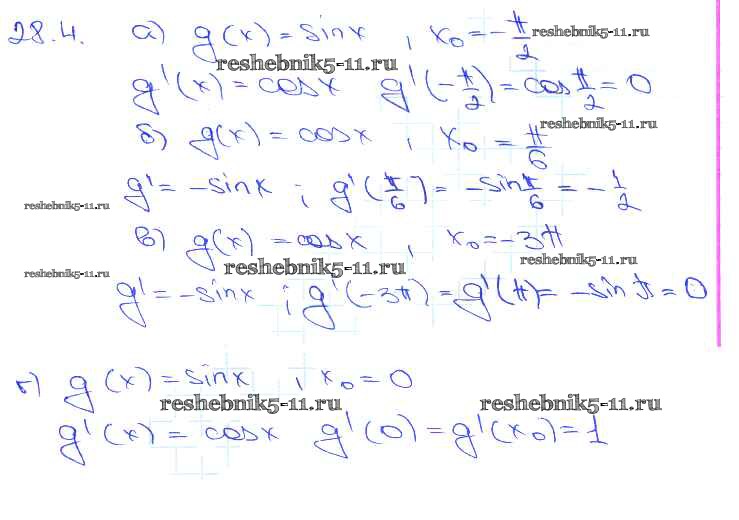 28.4. а) g(x) = sinx, x₀ = -π/2 reshebnik5-11.ru
reshebnik5-11.ru
g'(x) = cosx g'(-π/2) = cos π/2 = 0
reshebnik5-11.ru
б) g(x) = cosx, x₀ = π/6
g' = -sinx; g'(π/6) = -sin π/6 = -1/2
reshebnik5-11.ru
в) g(x) = cosx, x₀ = -3π
reshebnik5-11.ru reshebnik5-11.ru reshebnik5-11.ru
g' = -sinx; g'(-3π) = g'(π) = -sin π = 0
г) g(x) = sinx, x₀ = 0
reshebnik5-11.ru reshebnik5-11.ru
g'(x) = cosx g'(0) = g'(x₀) = 1